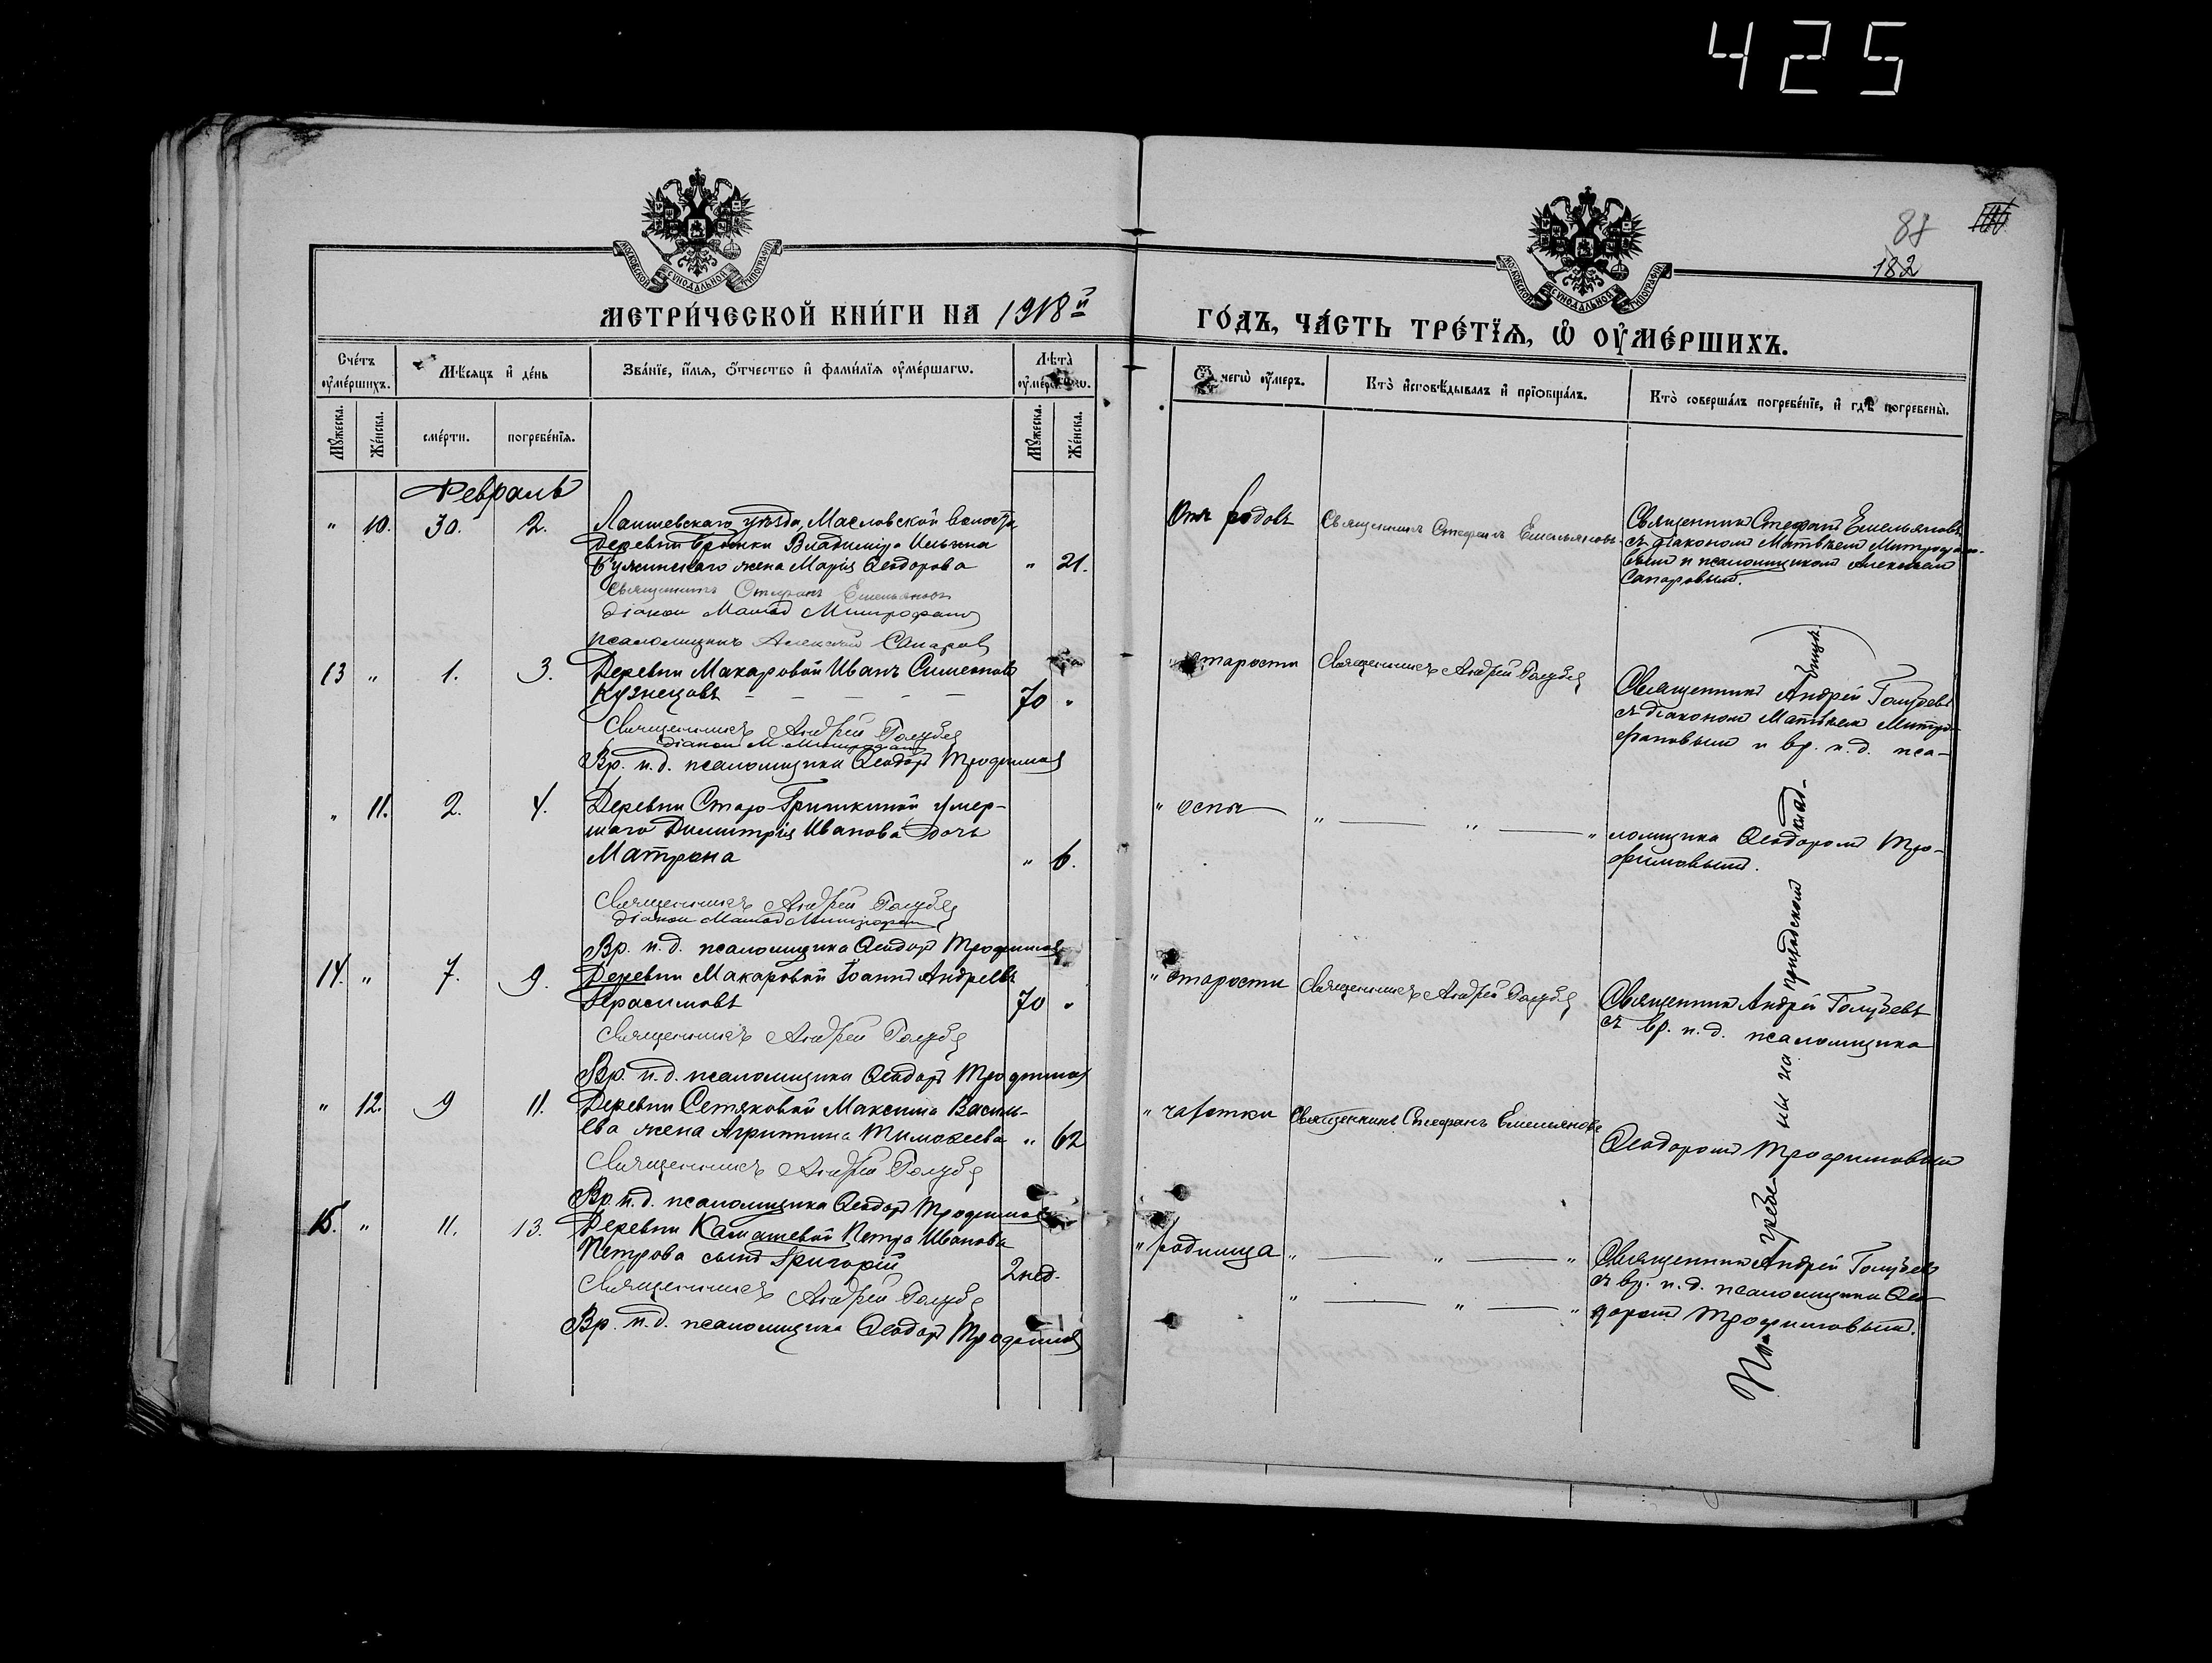 425
88
182
МОСКОВСКОЙ СѴНОДАЛЬНОЙ ТИПОГРАФІИ
МОСКОВСКОЙ СѴНОДАЛЬНОЙ ТИПОГРАФІИ
МЕТРИ́ЧЕСКОЙ КНИ́ГИ НА 1918й
ГО́ДЪ, ЧА́СТЬ ТРЕ́ТЇѦ, Ѡ҆ ОУ҆МЕ́РШИХЪ.
Счéтъ оу҆мéршихъ.
Мѣ́сяцъ и҆ дéнь
Звáнїе, и҆́мя, ѻ҆́тчество и҆ фами́лїя оу҆мéршагѡ.
Лѣ́та оу҆мéршагѡ.
Ѿ чегѡ̀ оу҆́меръ.
Кто̀ и҆сповѣ́дывалъ и҆ прїѻбщáлъ.
Кто̀ совершáлъ погребéнїе, и҆ гдѣ̀ погребены̀.
Мꙋ́жеска.
Жéнска.
смéрти.
погребéнїя.
Мꙋ́жеска.
Жéнска.
Февраль
" 10. 30. 2. Лаишевскаго уѣзда, Масловской волости,
деревни Владиміра Ильина
жена Марія Ѳеодорова " 21.
Священникъ Стефанъ Емельяновъ
діакон Матвѣй Митрофанов
псаломщикъ Алексѣй Сапаров
Отъ родовъ
Священникъ Стефанъ Емельяновъ
Священникъ Стефанъ Емельяновъ
съ діакономъ Матвѣемъ Митрофано-
вымъ и псаломщикомъ Алексѣемъ
Сапаровымъ.
13 " 1. 3. Деревни Макаровой Иванъ Симеоновъ
Кузнецовъ - - - - - 70 "
Священникъ Андрей Голубев
діакон М. Митрофанов
Вр. и. д. псаломщика Ѳеодоръ Трофимов
" старости
Священникъ Андрей Голубев
Священникъ Андрей Голубевъ
съ діакономъ Матвѣемъ Митро-
фановымъ и вр. и. д. пса-
" 11. 2. 4. Деревни Старо-Гришкиной умер-
шаго Димитрія Иванова дочь
Матрона " 6.
Священникъ Андрей Голубев
діакон Матвѣй Митрофанов
Вр. и. д. псаломщика Ѳеодоръ Трофимов
" оспы
" — " — "
ломщика Ѳеодоромъ Тро-
фимовымъ.
14. " 7. 9. Деревни Макаровой Іоаннъ Андреевъ
Герасимовъ 70 "
Священникъ Андрей Голубев
Вр. и. д. псаломщика Ѳеодоръ Трофимов
" старости
Священникъ Андрей Голубев
Священникъ Андрей Голубевъ
съ вр. и. д. псаломщика
" 12. 9 11. Деревни Сетяковой Максима Василь-
ева жена Агриппина Тимоѳеева " 62
Священникъ Андрей Голубев
Вр. и. д. псаломщика Ѳеодоръ Трофимов
" чахотки
Священникъ Стефанъ Емельяновъ
Ѳеодоромъ Трофимовымъ
15. " 11. 13. Деревни Камашевой Петра Иванова
Петрова сынъ Григорій 2 нед.
Священникъ Андрей Голубев
Вр. и. д. псаломщика Ѳеодоръ Трофимов
" родимца
" — " — "
" — " — "
Священникъ Андрей Голубевъ
съ вр. и. д. псаломщика Ѳео-
доромъ Трофимовымъ.
Погребены на приходском кладбищѣ.